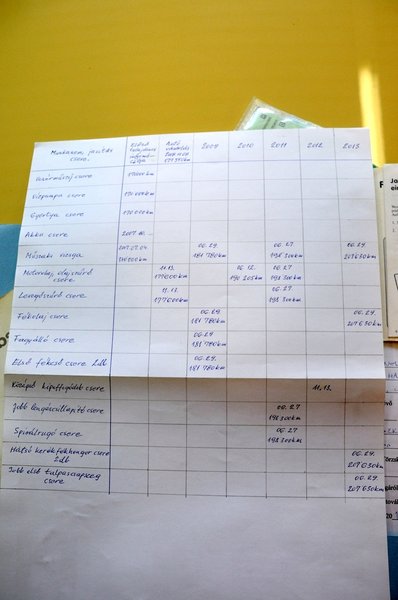 Munkanem, javítás csere. Előző tulajdonos Autó vásárlás 2009 2010 2011 2012 2013
Vezérműszíj csere
Vízpumpa csere 170000 km
Gyertya csere 170000 km
Akku csere 2007.
Műszaki vizsga 2007.02.04 06.29. 06.27 06.29.
181 780km 198 300km 207630km
Motorolaj, olajszűrő csere 11.13. 06.12. 06.27
177600km 190205km 198 300km
Levegőszűrő csere 11.13. 06.27.
177600km 198 300km
Fékolaj csere 06.29 06.29.
181 780km 207630km
Fagyálló csere 06.29
181 780km
Első fékcső csere 2db 06.29.
181 780km
Középső kipuffogódob csere 11.13.
Jobb lengéscsillapító csere 06.27
198300km
Spirálrugó csere 06.27
198300km
Hátsó kerékfékhenger csere 2db 06.29.
207630km
Jobb első talpascsapszeg csere 06.29.
207630km